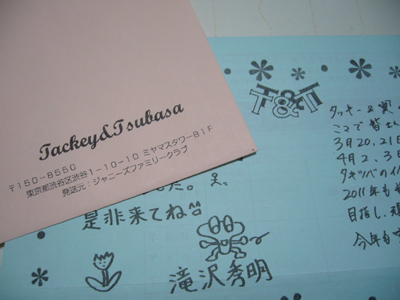 Tackey&Tsubasa
〒150-8550
東京都渋谷区渋谷1-10-10 ミヤマスタワーB1F
発送元:ジャニーズファミリークラブ
T&T
タッキー&翼の
ここで皆さん
3月20,21
4月2、3日
タキツバのイ
2011年も
目指し、頑
今年も
した。翼。
是非来てね^^
滝沢秀明